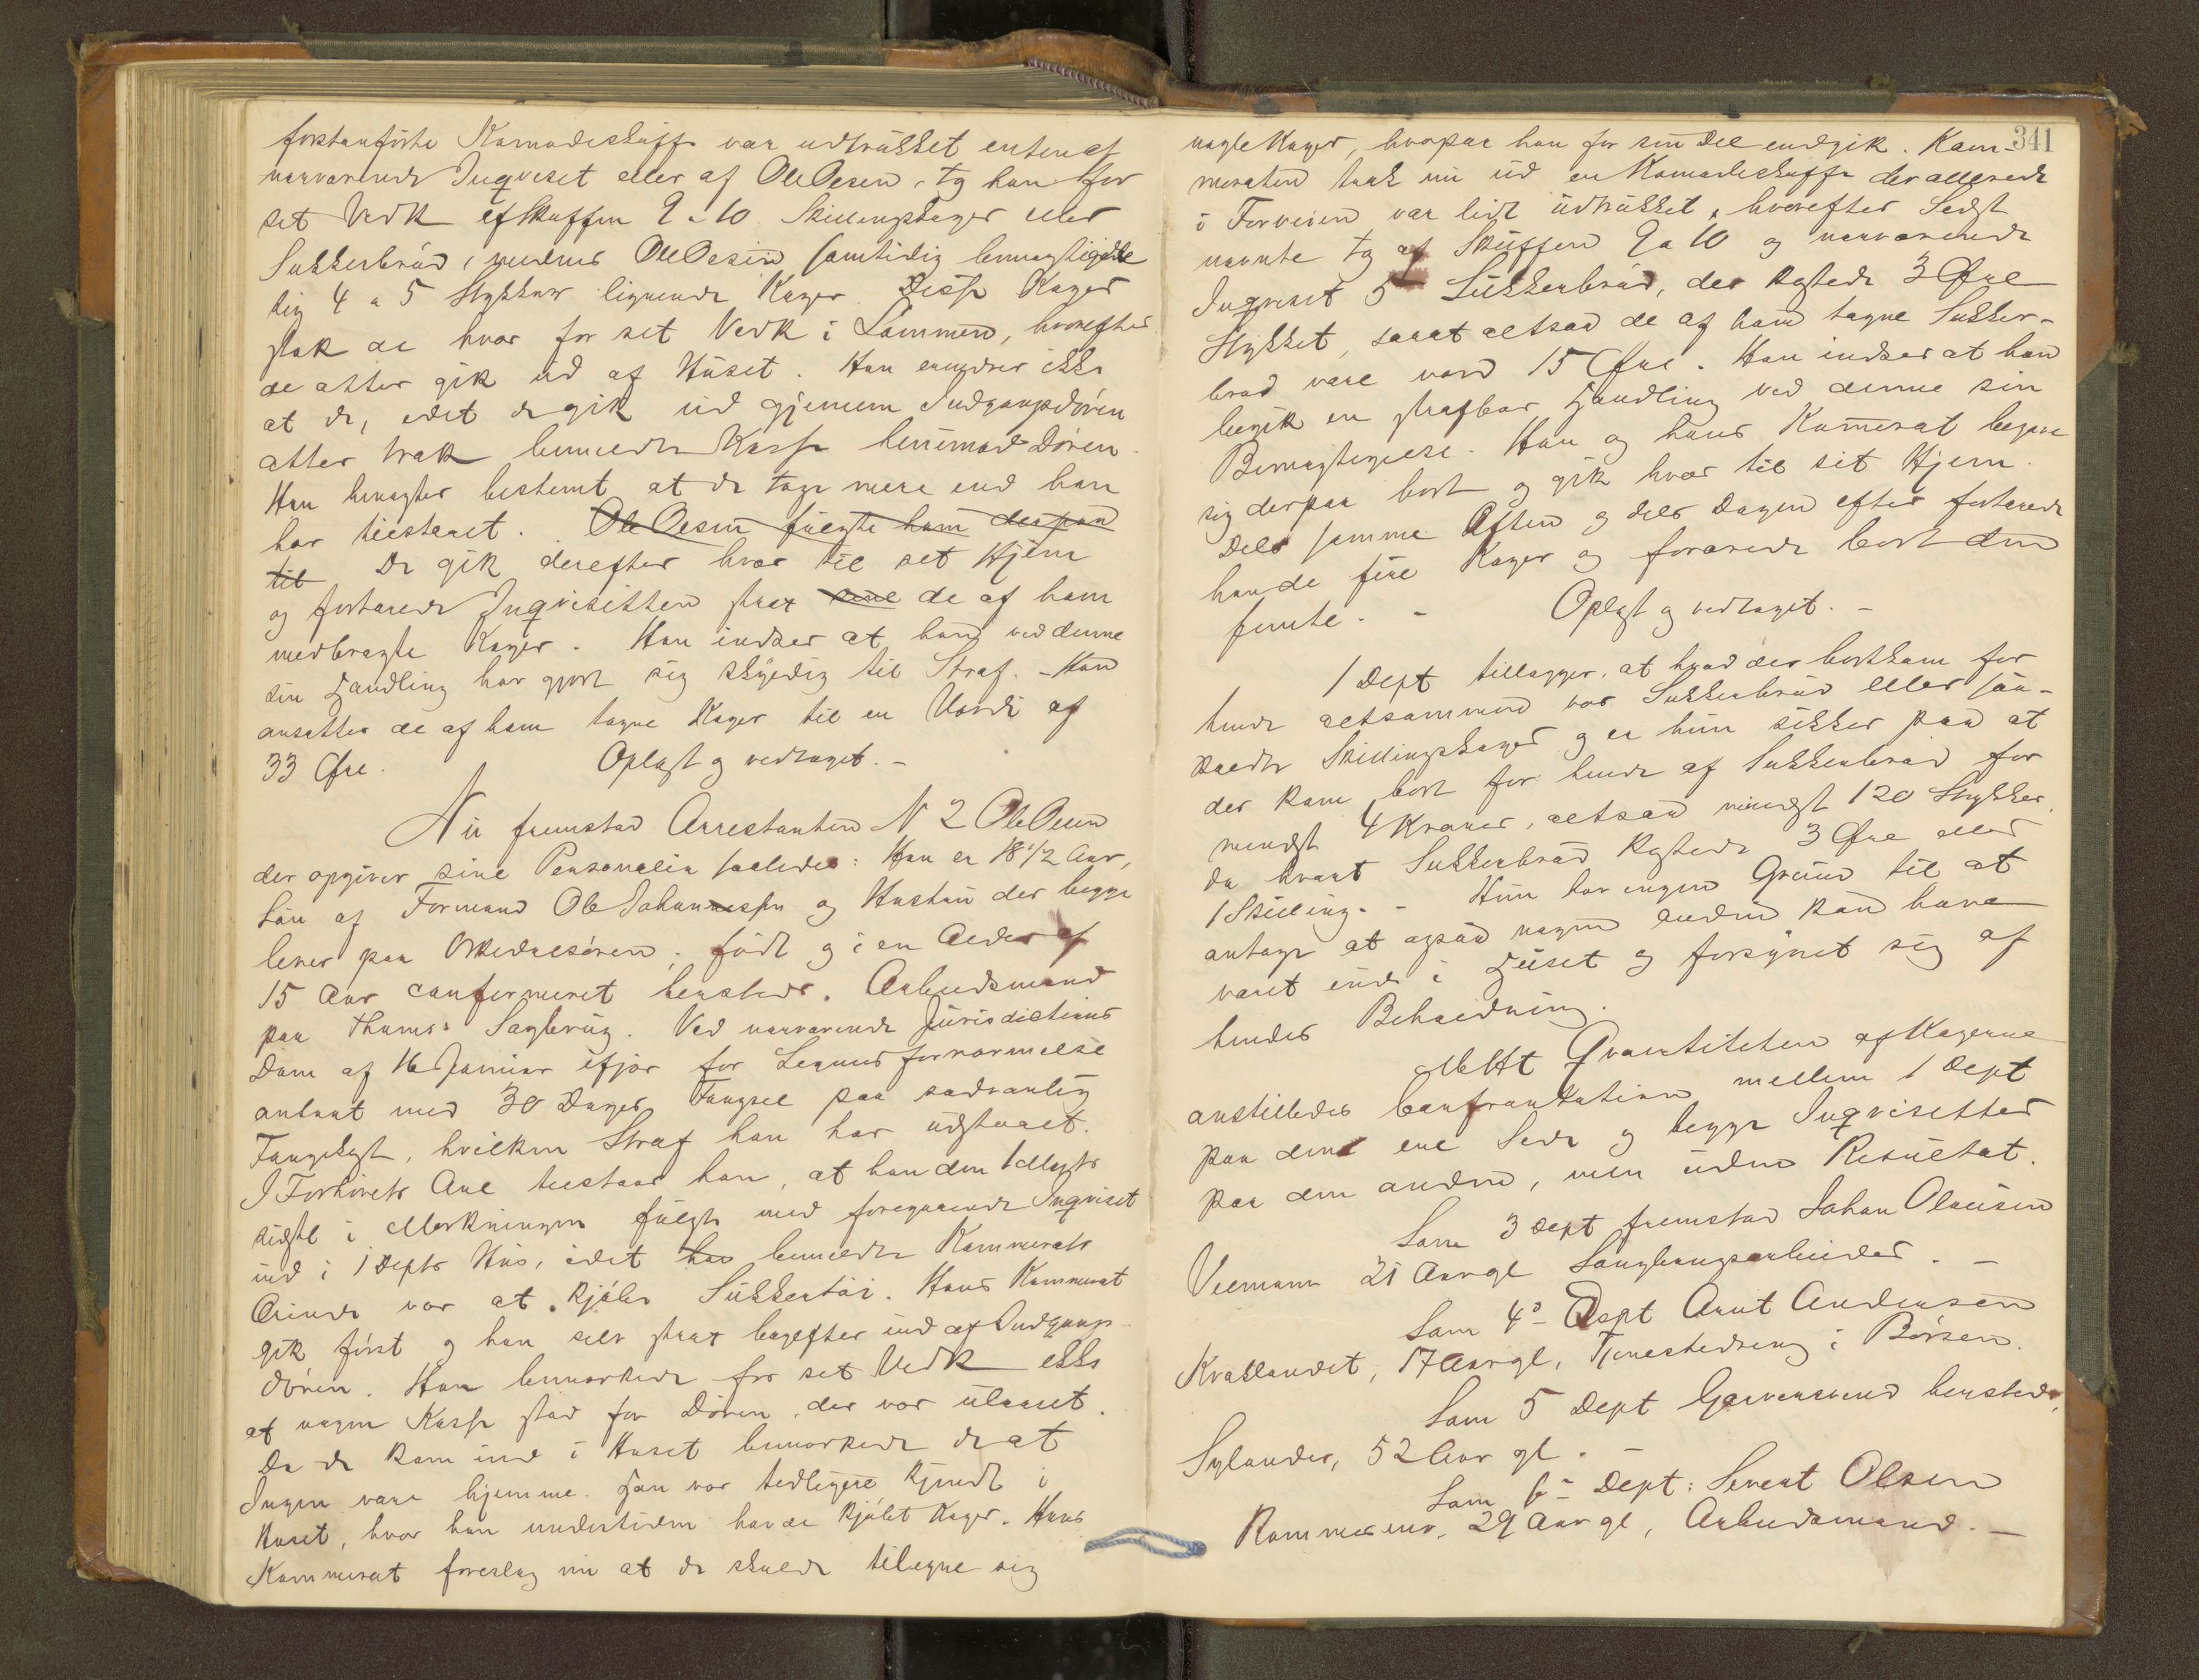 forstanførte Komodeskuffe var udtrukket enten af
nærværende Inqvisit eller af Ole Olsen, tog han for
sit Vedk af Skuffen 9 a 10 Skillingskager eller
Sukkerbrød, medens Ole Olsen samtidig bemægtigede
sig 4 a 5 Stykker lignende Kager. Disse Kager
stak de hver for sit Vedk i Lommen, hvorefter
de atter gik ud af Huset. Han erindrer ikke
at de, idet de gik ud gjennem Indgangsdøren
atter trak bemeldte Kasse henimod Døren.
Han benægter bestemt at de tog mere end han
har tilstaaet. Ole Olsen fulgte ham derpaa
til De gik derefter hver til sit Hjem
og fortærede Inqvisitten strax sine de af ham
medbragte Kager. Han indser at han ved denne
sin Handling har gjort sig skyldig til Straf. - Han
ansætter de af ham tagne Kager til en Værdi af
33 Øre. Oplæst og vedtaget. -
Nu fremstod Arrestanten N 2 Ole Olsen
der opgiver sine Personalia saaledes: Han er 18 1/2 Aar,
Søn af Formand Ole Johannessen og Hustru der begge
lever paa Orkedalsøren, født og i en Alder af
15 Aar confirmeret hersteds. Arbeidsmand
paa Thams's Sagbrug. Ved nærværende Jurisdictions
Dom af 16 Januar ifjor for Legemsfornærmelse
anseet med 30 Dages Fængsel paa sædvanlig
Fangekost, hvilken Straf han har udstaaet.
I Forhørets Anl tilstaar han, at han den 1 dNæste
sidstl i Mørkningen fulgte med foregaaende Inqvisit
ind i 1 Depts Hus, idet han bemeldte Kammerats
Ærinde var at kjøbe Sukkertøi. Hans Kammerat
gik først og han selv strax bagefter ind af Indgangs-
døren. Han bemærkede for sit Vedk ikke
at nogen Kasse stod for Døren, der var ulaaset.
Da de kom ind i Huset bemærkede de at
Ingen vare hjemme. Han var tidligere kjendt i
Huset, hvor han undertiden havde kjøbt Kager. Hans
Kammerat foreslog nu at de skulde tilegne sig
341
nogle Kager, hvorpaa han for sin Del endgik. Kam-
meraten trak nu ud en Komodeskuffe der allerede
i Forveien var lidt udtrukket, hvorefter Sidst
nævnte tog af Skuffen 9 a 10 og nærværende
Inqvisit 5 Sukkerbrød, der kostede 3 Øre
Stykket, saaat altsaa de af ham tagne Sukker-
brød vare værd 15 Øre. Han indser at han
begik en strafbar Handling ved denne sin
Bemægtigelse. Han og hans Kammerat begave
sig derpaa bort og gik hver til sit Hjem.
Dels samme Aften og dels Dagen efter fortærede
han de fire Kager og forærede bort den
femte. - Oplæst og vedtaget. -
1 Dept tillægger, at hvad der bortkom for
hende altsammen var Sukkerbrød eller saa-
kaldte Skillingskager og er hun sikker paa at
der kom bort for hende af Sukkerbrød for
mindst 4 Kroner, altsaa mindst 120 Stykker,
da hvert Sukkerbrød kostede 3 Øre eller
1 Skilling. - Hun har ingen Grund til at
antage at ogsaa nogen anden kan have
været inde i Huset og forsynet sig af
hendes Beholdning.
MHt Qvantiteten af Kagerne
anstilledes Confrontation mellem 1 Dept
paa den ene Side og begge Inqvisitter
paa den anden, men uden Resultat.
Som 3 Dept fremstod Johan Olausen
Viemann 21 Aar gl Saugbrugsarbeider. -
Som 4de Dept Arnt Andersen
Kvaslandet, 17 Aar gl, Tjenestedreng i Børsen.
Som 5 Dept Garversvend hersteds,
Sylander, 52 Aar gl. -
Som 6te Dept: Sivert Olsen
Rommesmo. 29 Aar gl, Arbeidsmand. -